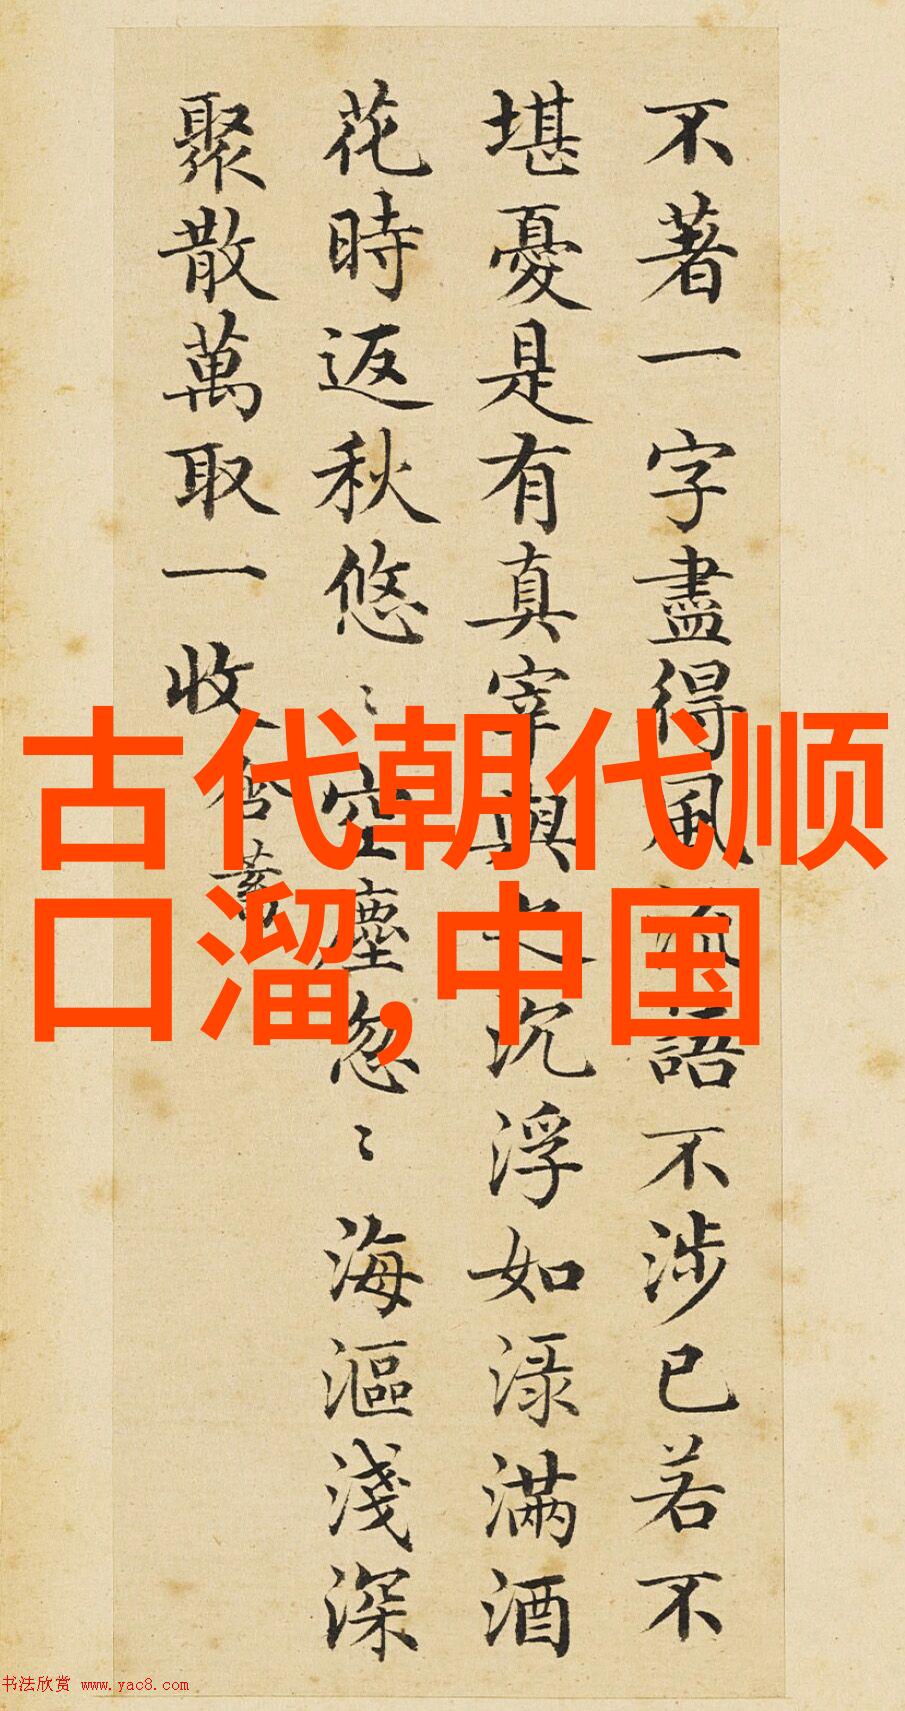 不著一字盡得風流語不涉已若不
堪憂是有真宰與之沉浮如淥滿酒
花時返秋悠〻空塵忽〻海漚淺深
聚散萬取一收含蓄
古代朝代顺
口溜,中国
书法欣赏 www.yac8.com